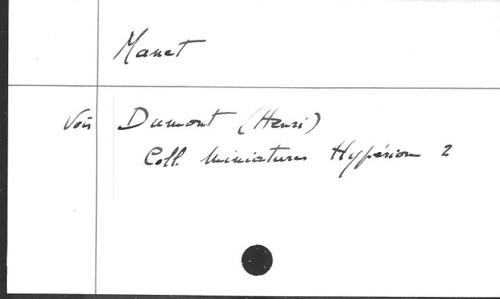 Manet
Voir Dumont (Henri)
Coll. Miniatures Hypérion 2